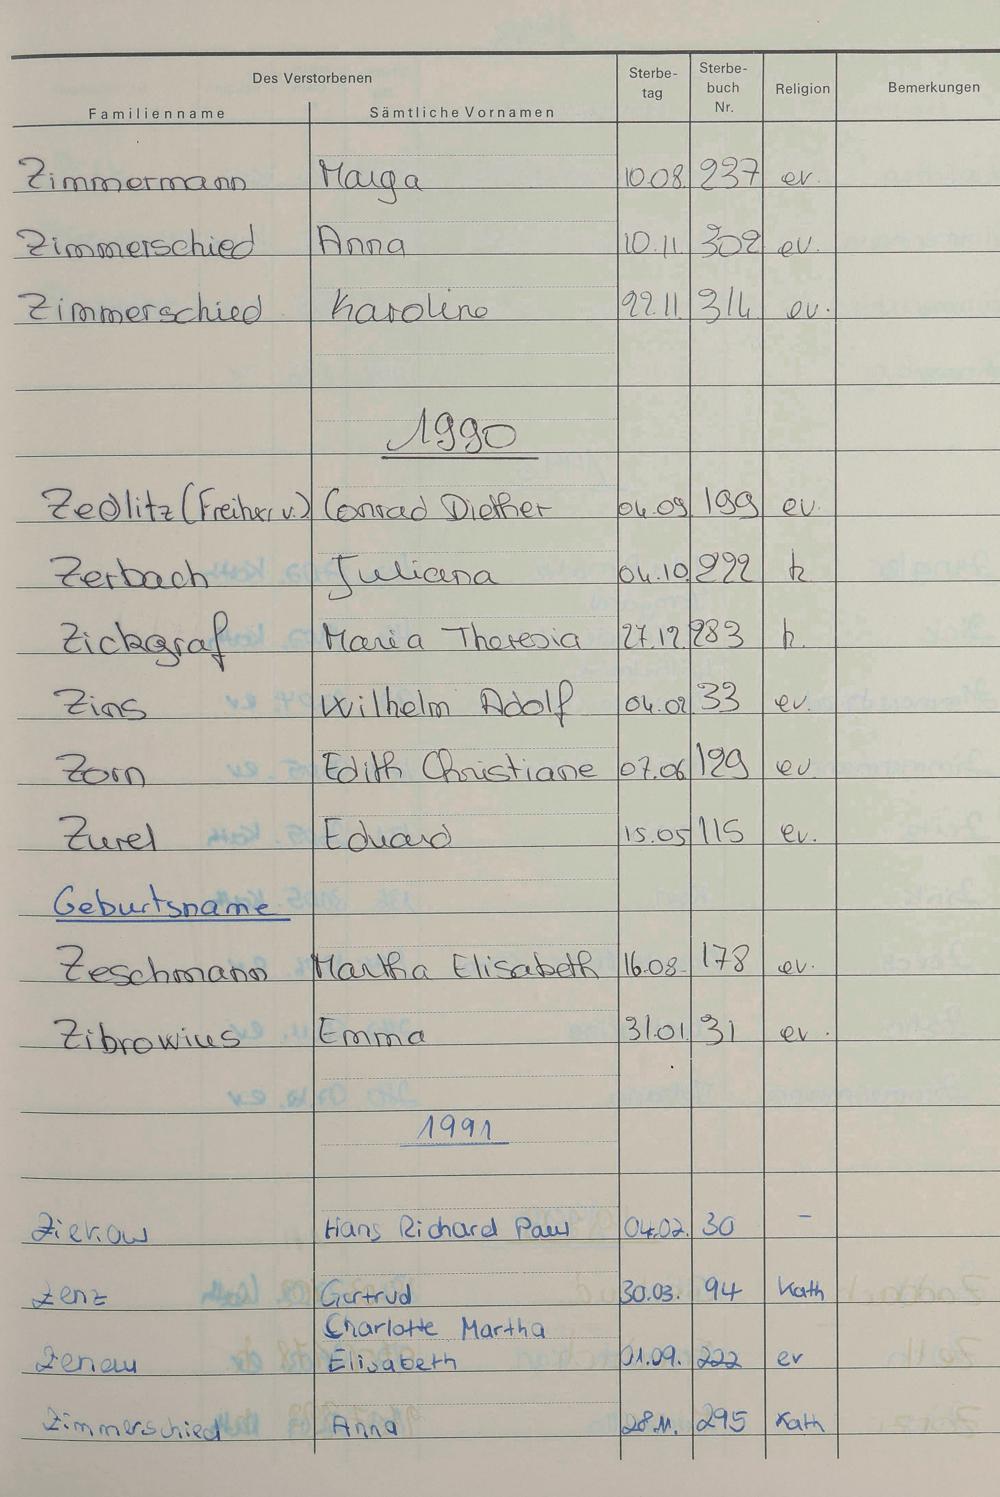 Des Verstorbenen
Familienname Sämtliche Vornamen Sterbe-tag Sterbe-buch Nr. Religion Bemerkungen
Zimmermann Marga 10.08. 237 ev.
Zimmerschied Anna 10.11. 302 ev.
Zimmerschied Karoline 22.11. 314 ev.
1990
Zedlitz (Freiherr v.) Conrad Diether 04.09 199 ev.
Zerbach Juliana 04.10 222 k
Zickgraf Maria Theresia 27.12. 283 k.
Zins Wilhelm Adolf 04.02 33 ev.
Zorn Edith Christiane 07.06 129 ev.
Zurel Eduard 15.05 115 ev.
Geburtsname
Zeschmann Martha Elisabeth 16.08. 178 ev.
Zibrowius Emma 31.01. 31 ev.
1991
Ziekow Hans Richard Paul 04.02. 30 –
Zenz Gertrud 30.03. 94 Kath
Charlotte Martha
Zenau Elisabeth 01.09. 222 ev
Zimmerschied Anna 28.11. 295 Kath